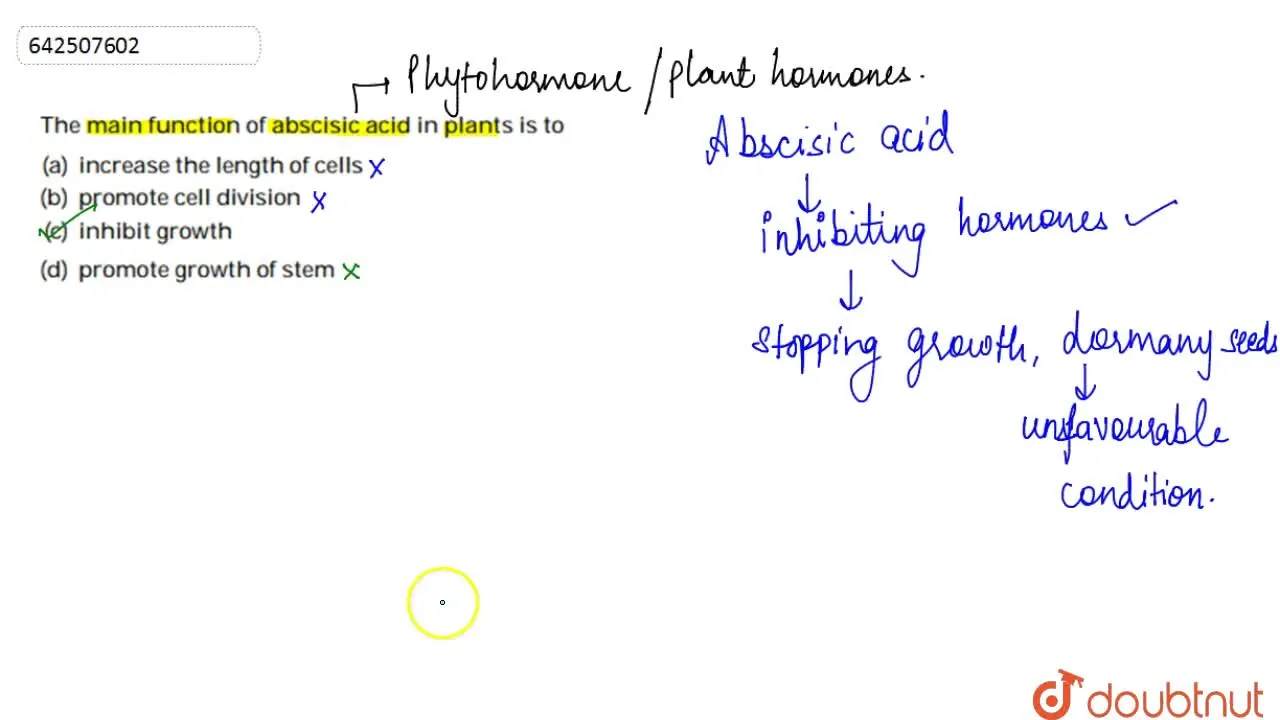 642507602
Phytohormone / plant hormones.
The main function of abscisic acid in plants is to
(a) increase the length of cells x
(b) promote cell division x
(c) inhibit growth
(d) promote growth of stem x
Abscisic acid
inhibiting hormones ✓
stopping growth, dormany seeds
unfavourable
condition.
doubtnut